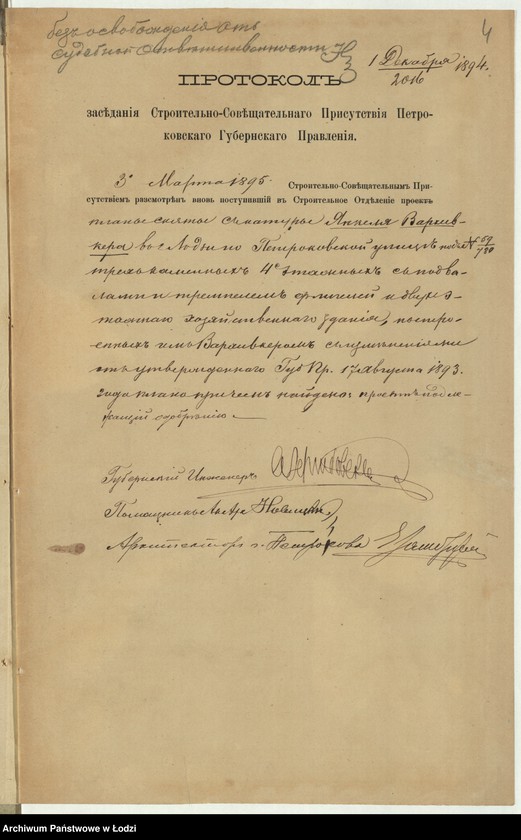 безъ освобожденія отъ
судебной отвѣтственности
4
1 Декабря 1894.
2016
ПРОТОКОЛЪ
засѣданія Строительно-Совѣщательнаго Присутствія Петро-
ковскаго Губернскаго Правленія.
3 Марта 1895. Строительно-Совѣщательнымъ При-
сутствіемъ разсмотрѣнъ вновь поступившій въ Строительное Отдѣленіе проектъ
планъ снятый съ натуры Анкеля Вархив-
кера въ г. Лодзи по Петроковской улицѣ подъ № 559/780
трехъ каменныхъ 4хъ этажныхъ съ подва-
лами и флигелей и двухъ э-
тажнаго хозяйственнаго зданія, постро-
енныхъ имъ Вархивкеромъ съ измѣненіями
отъ утвержденнаго Губ. Пр. 17 Августа 1893.
года плана причемъ найдено: проектъ подле-
жащій одобренію.
Губернскій Инженеръ
Помощникъ
Архитекторъ г. Петрокова
Archiwum Państwowe w Łodzi